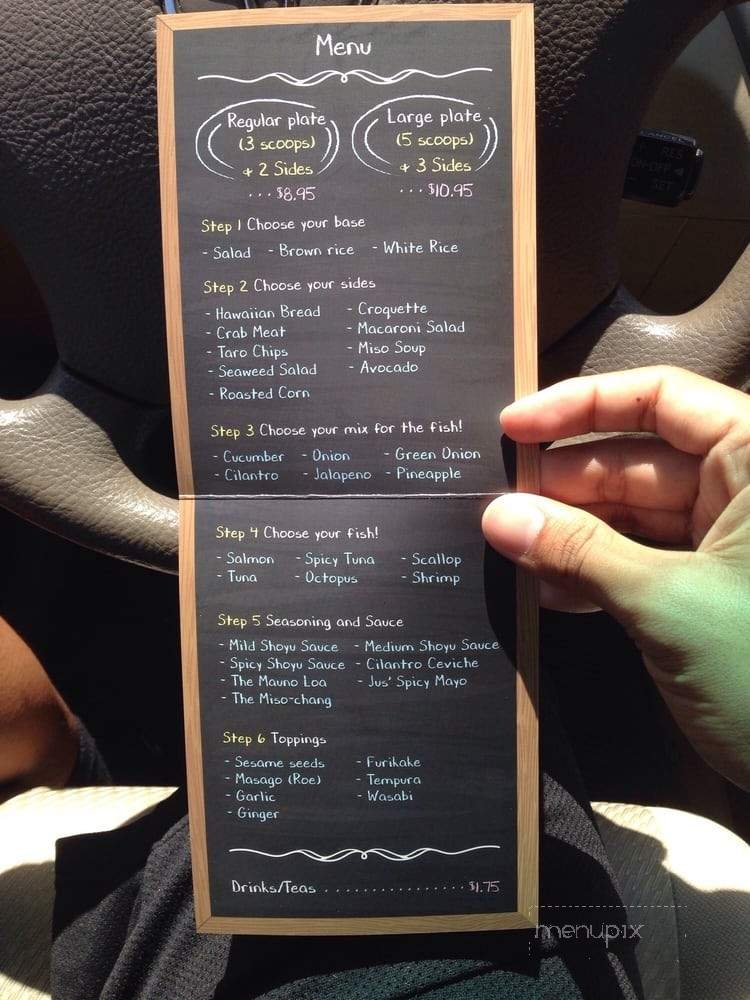 Menu
Regular plate Large plate
(3 scoops) (5 scoops)
+ 2 Sides + 3 Sides
... $8.95 ... $10.95
Step 1 Choose your base
- Salad - Brown rice - White Rice
Step 2 Choose your sides
- Hawaiian Bread - Croquette
- Crab Meat - Macaroni Salad
- Taro Chips - Miso Soup
- Seaweed Salad - Avocado
- Roasted Corn
Step 3 Choose your mix for the fish!
- Cucumber - Onion - Green Onion
- Cilantro - Jalapeno - Pineapple
Step 4 Choose your fish!
- Salmon - Spicy Tuna - Scallop
- Tuna - Octopus - Shrimp
Step 5 Seasoning and Sauce
- Mild Shoyu Sauce - Medium Shoyu Sauce
- Spicy Shoyu Sauce - Cilantro Ceviche
- The Mauno Loa - Jus' Spicy Mayo
- The Miso-chang
Step 6 Toppings
- Sesame seeds - Furikake
- Masago (Roe) - Tempura
- Garlic - Wasabi
- Ginger
Drinks/Teas ................. $1.75
CANCEL
RES
ON-OFF
SET
menupix